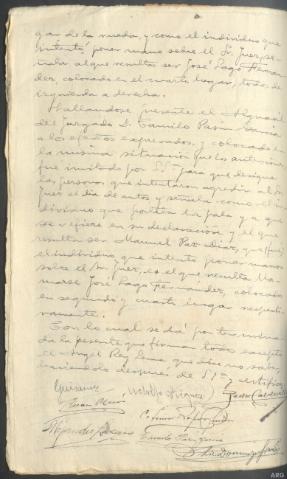 gar de la rueda, y como el individuo que
intentó poner mano sobre el Sr. Juez, se-
ñala al que resulta ser José Lago Fernan-
dez, colocado en el cuarto lugar, todos de
izquierda a derecha.
Hallandose presente el Alguacil
del Juzgado D. Camilo
a los efectos expresados, y colocado en
la misma situación que los anteriores
fue invitado por S.Sª para que designe
las personas que intentaron agredir al Sr.
Juez el dia de autos y señala como el in-
dividuo que portaba la pala y a que
se refiere en su declaración y el que
resulta ser Manuel Paz Diaz, que fue
el individuo que intentó poner mano
sobre el Sr. Juez, es el que resulta lla-
marse José Lago Fernandez, colocados
en segundo y cuarto lugar respecti-
vamente.
Con lo cual se dió por terminada
la presente que firman todos excepto
el Angel Rey que dice no saber,
haciendolo despues de S.Sª y certifico